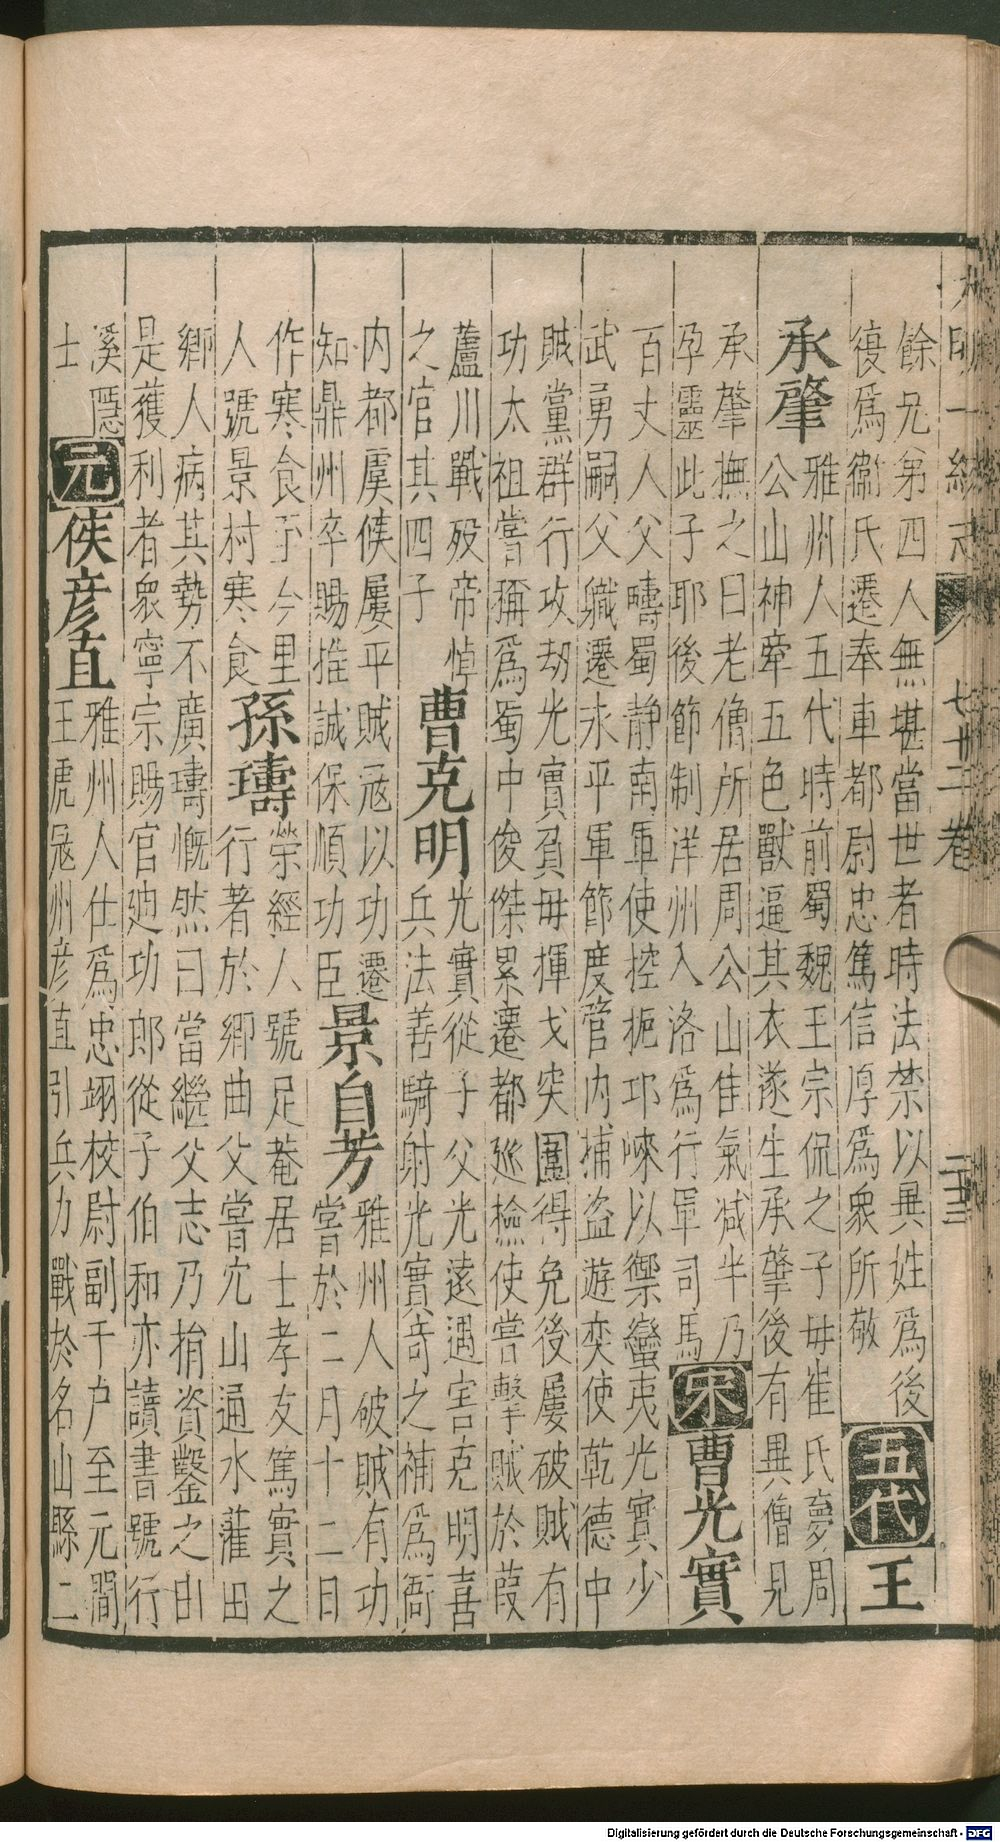 大明一統志 七十二卷 二十三
餘兄弟四人無堪當世者時法禁以異姓爲後
復爲衞氏遷奉車都尉忠篤信厚爲衆所敬
五代
王
承肇
雅州人五代時前蜀魏王宗侃之子母崔氏夢周
公山神牽五色獸逼其衣遂生承肇後有異僧見
承肇撫之曰老僧所居周公山佳氣减半乃
孕靈此子耶後節制洋州入洛爲行軍司馬
宋
曹光實
百丈人父疇蜀靜南軍使控扼邛崍以禦蠻夷光實少
武勇嗣父職遷永平軍節度管内捕盗遊奕使乾德中
賊黨群行攻刼光實負母揮戈突圍得免後屢破賊有
功太祖嘗稱爲蜀中俊傑累遷都廵檢使嘗擊賊於葭
蘆川戰殁帝悼
之官其四子
曹克明
光實從子父光遠遇害克明喜
兵法善騎射光實竒之補爲衙
内都虞候屢平賊冦以功遷
知鼎州卒賜推誠保順功臣
景自芳
雅州人破賊有功
嘗於二月十二日
作寒食至今里
人號景村寒食
孫壔
榮經人號足菴居士孝友篤實之
行著於鄉曲父嘗穴山通水灌田
鄉人病其勢不廣壔慨然曰當繼父志乃捐資鑿之由
是獲利者衆寧宗賜官廸功郎從子伯和亦讀書號行
溪隱
士
元
侯彦直
雅州人仕爲忠翊校尉副千户至元間
王虎冦州彦直引兵力戰於名山縣二
Digitalisierung gefördert durch die Deutsche Forschungsgemeinschaft - DFG